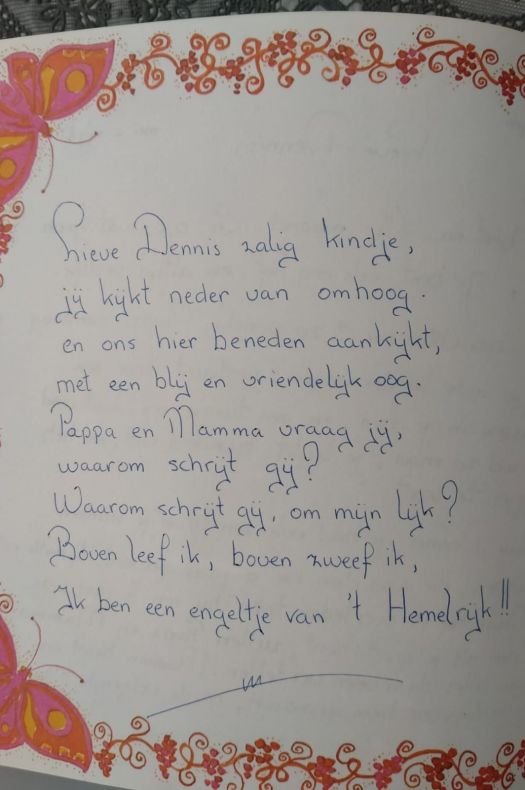 Lieve Dennis zalig kindje,
jij kijkt neder van omhoog.
en ons hier beneden aankijkt,
met een blij en vriendelijk oog.
Pappa en Mamma vraag jij,
waarom schrijt gij?
Waarom schrijt gij, om mijn lijk?
Boven leef ik, boven zweef ik,
Ik ben een engeltje van 't Hemelrijk!!